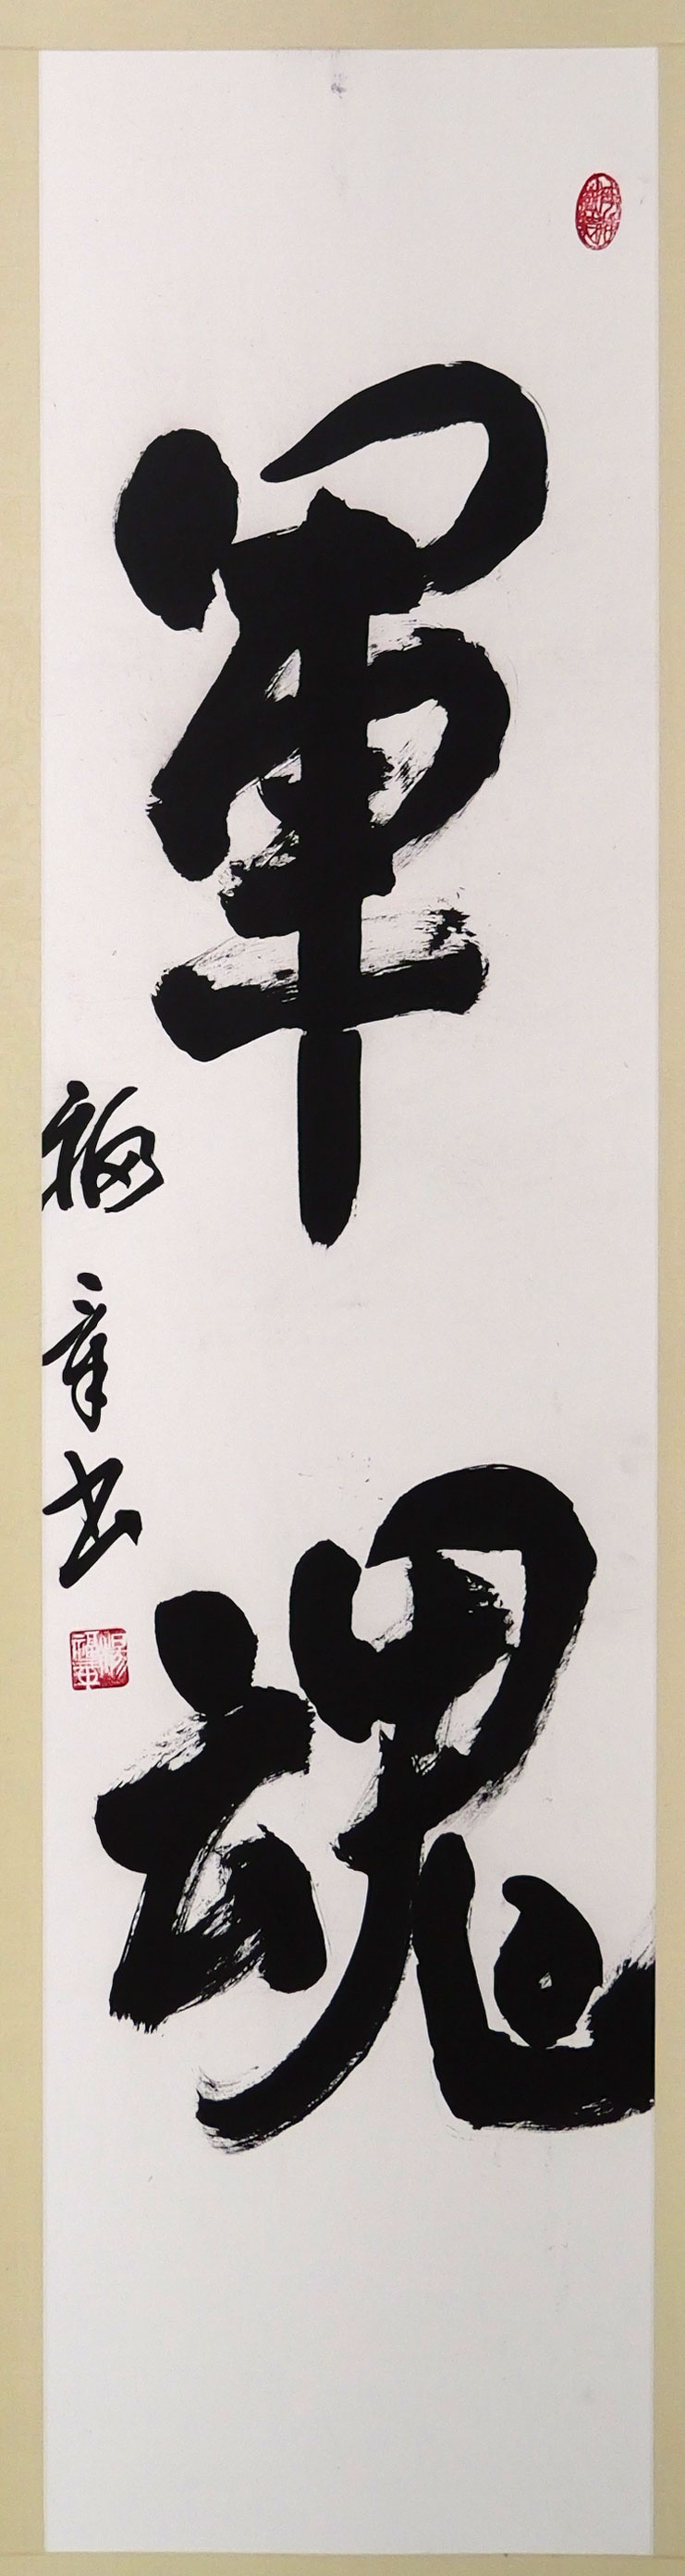 軍魂
福章书